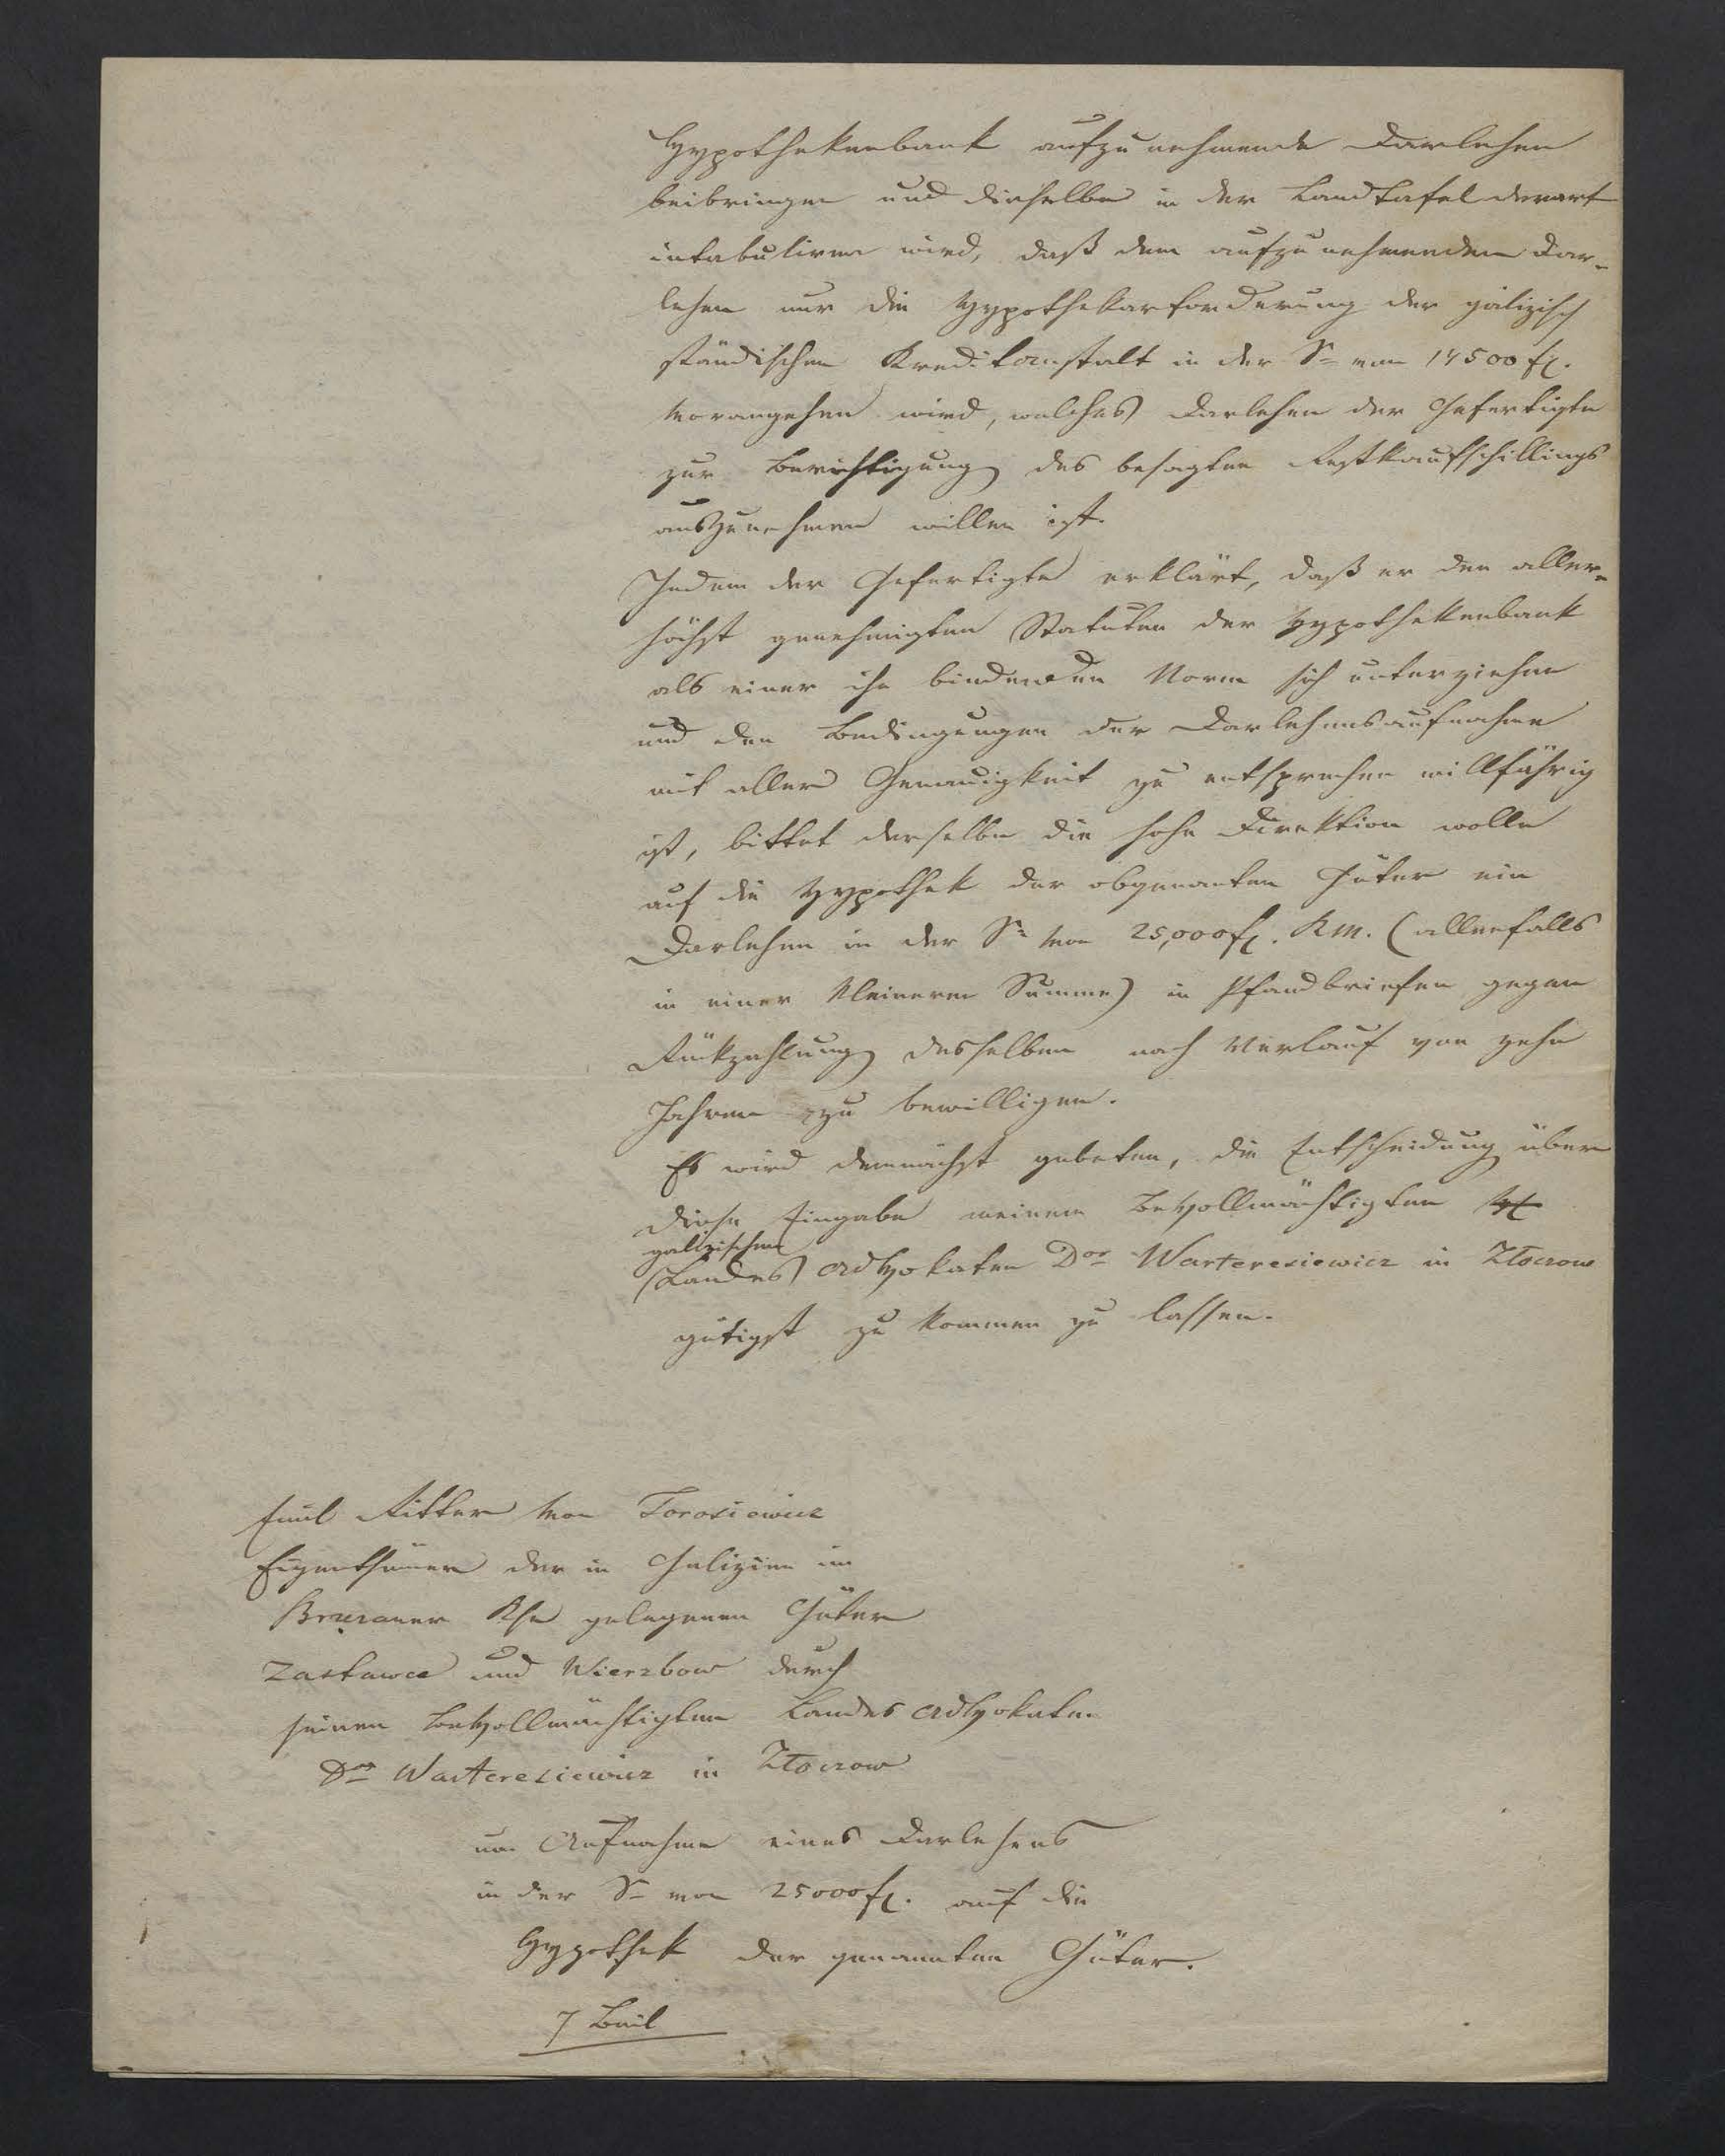 Hypothekenbank aufzunehmende Darlehen
beibringen und dieselbe in der Landtafel derart
intabuliren wird, daß dem aufzunehmenden Dar-
lehen nur die Hypothekarforderung der galizisch
ständischen Kreditanstalt in der Se von 14500 fl.
vorangehen wird, welches Darlehen der Gefertigte
zur Berichtigung des besagten Restkaufschillings
aufzunehmen willen ist.
Indem der Gefertigte erklärt, daß er den aller-
höchst genehmigten Statuten der Hypothekenbank
als einer ihn bindenden Norm sich unterziehen
und den Bedingungen der Darlehensaufnahme
mit aller Genauigkeit zu entsprechen willfährig
ist, bittet derselbe die hohe Direktion wolle
auf die Hypothek der obgenanten Güter ein
Darlehen in der Se von 25,000 fl. KM. (allenfalls
in einer kleineren Summe) in Pfandbriefen gegen
Rückzahlung desselben nach Verlauf von zehn
Jahren zu bewilligen.
Es wird demnächst gebeten, die Entscheidung über
diese Eingabe meinem Bevollmächtigten
galizischen
Landes Advokaten Dor Warteresiewicz in Złoczow
gütigst zu kommen zu lassen.
Emil Ritter von Torosiewicz
Eigenthümer der in Galizien im
Brzezaner Kse gelegenen Güter
Zastawce und Wierzbow durch
seinen bevollmächtigten Landes Advokaten
Dor Warteresiewicz in Złoczow
um Aufnahme eines Darlehens
in der Se von 25000 fl. auf die
Hypothek der genannten Güter.
7 Beil